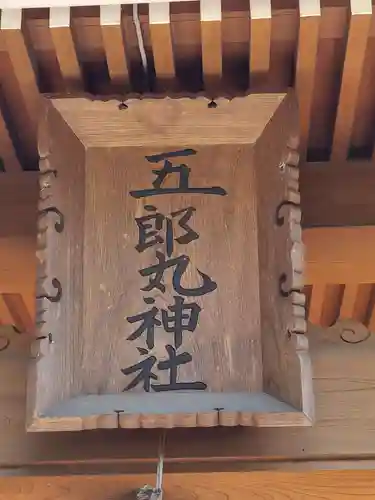 五郎丸神社